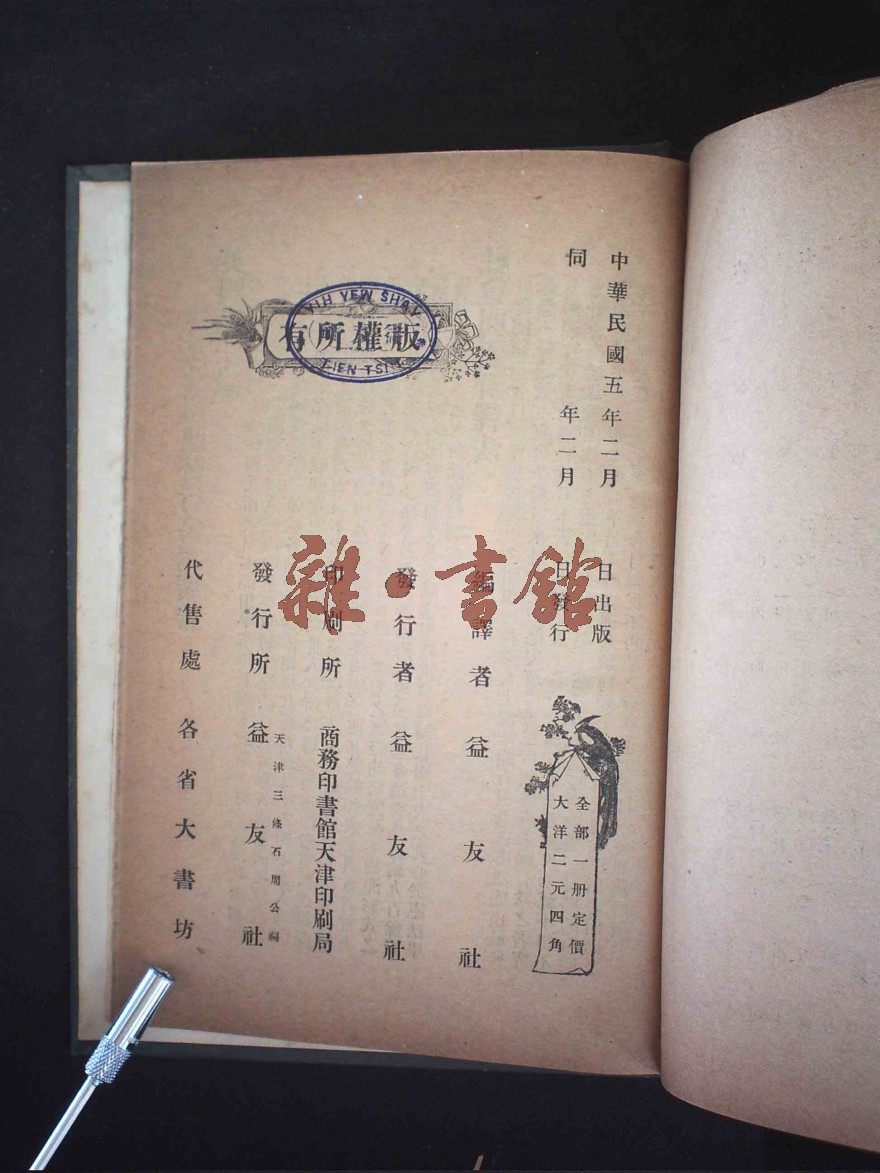 中華民國五年二月 日出版
仝 年二月 日發行
全部一册定價
大洋二元四角
編譯者 益友社
發行者 益友社
印刷所 商務印書館天津印刷局
天津三條石周公祠
發行所 益友社
代售處 各省大書坊
有所權版
YIH YEW SHAY
TIEN TSIN
雜·書館